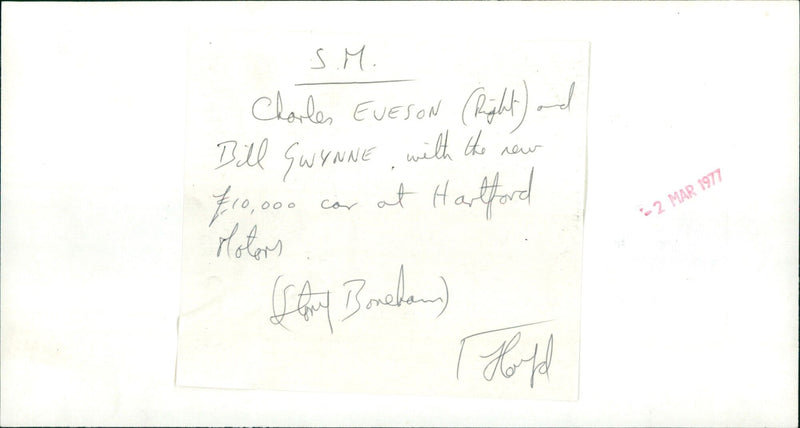 S.M.
Charles EVESON (Right) and
Bill GWYNNE, with the new
£10,000 car at Hartford
Motors
(Story Boneham)
2 MAR 1977